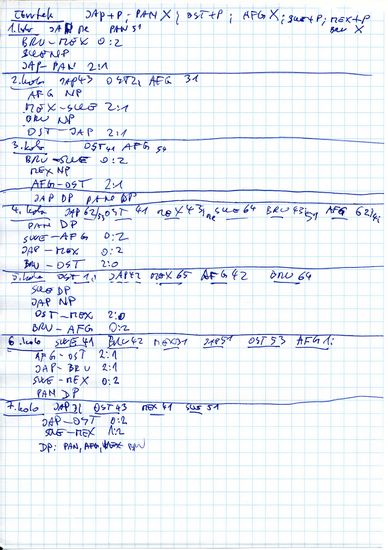 JAP+P; PAN X; OST+P; AFG X; SWE+P; MEX+P
BRU X
1. kolo JAP ne PAN 51
BRU-MEX 0:2
SWE NP
JAP-PAN 2:1
2. kolo JAP 43 OST 21 AFG 31
AFG NP
MEX-SWE 2:1
BRU NP
OST-JAP 2:1
3. kolo OST 41 AFG 54
BRU-SWE 0:2
MEX NP
AFG-OST 2:1
JAP DP PAN DP
4. kolo JAP 62/31 OST 41 MEX 43/ne SWE 64 BRU 43/51 AFG
PAN DP
SWE-AFG 0:2
JAP-MEX 0:2
BRU-OST 2:0
5. kolo OST JAP MEX 65 AFG 42 BRU 64
SWE DP
JAP NP
OST-MEX 2:0
BRU-AFG 0:2
6. kolo SWE 41 BRU 42 MEX 31 JAP 51 OST 53 AFG
AFG-OST 2:1
JAP-BRU 2:1
SWE-MEX 0:2
PAN DP
7. kolo JAP OST 43 MEX 41 SWE 51
JAP-OST 0:2
SWE-MEX 1:2
DP: PAN, AFG,